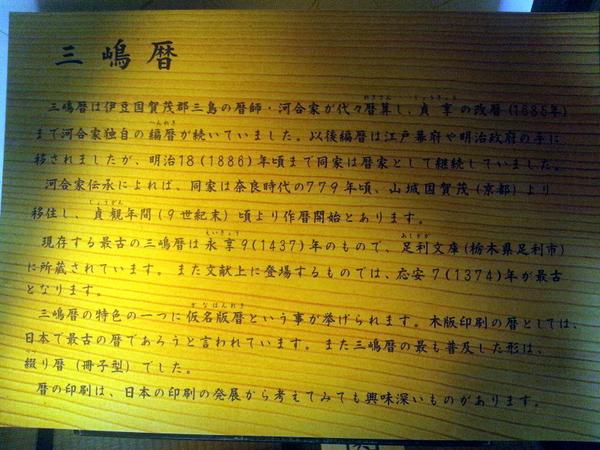 三嶋暦
三嶋暦は伊豆国賀茂郡三島の暦師・河合家が代々暦算し、貞享の改暦(1685年)
まで河合家独自の編暦が続いていました。以後編暦は江戸幕府や明治政府の手に
移されましたが、明治18(1886)年頃まで同家は暦家として継続していました。
河合家伝承によれば、同家は奈良時代の779年頃、山城国賀茂(京都)より
移住し、貞観年間(9世紀末)頃より作暦開始とあります。
現存する最古の三嶋暦は永享9(1437)年のもので、足利文庫(栃木県足利市)
に所蔵されています。また文献上に登場するものでは、応安7(1374)年が最古
となります。
三嶋暦の特色の一つに仮名版暦という事が挙げられます。木版印刷の暦としては、
日本で最古の暦であろうと言われています。また三嶋暦の最も普及した形は、
綴り暦(冊子型)でした。
暦の印刷は、日本の印刷の発展から考えてみても興味深いものがあります。